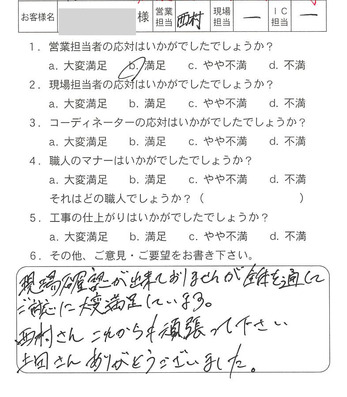 お客様名 様 営業担当 西村 現場担当 ー IC担当 ー
1. 営業担当者の応対はいかがでしたでしょうか?
a. 大変満足 b. 満足 c. やや不満 d. 不満
2. 現場担当者の応対はいかがでしたでしょうか?
a. 大変満足 b. 満足 c. やや不満 d. 不満
3. コーディネーターの応対はいかがでしたでしょうか?
a. 大変満足 b. 満足 c. やや不満 d. 不満
4. 職人のマナーはいかがでしたでしょうか?
a. 大変満足 b. 満足 c. やや不満 d. 不満
それはどの職人でしょうか?( )
5. 工事の仕上がりはいかがでしたでしょうか?
a. 大変満足 b. 満足 c. やや不満 d. 不満
6. その他、ご意見・ご要望をお書き下さい。
現場確認が出来ておりませんが 全体を通して
ご対応に大変満足しています。
西村さん これからも頑張って下さい
土田さん ありがとうございました。